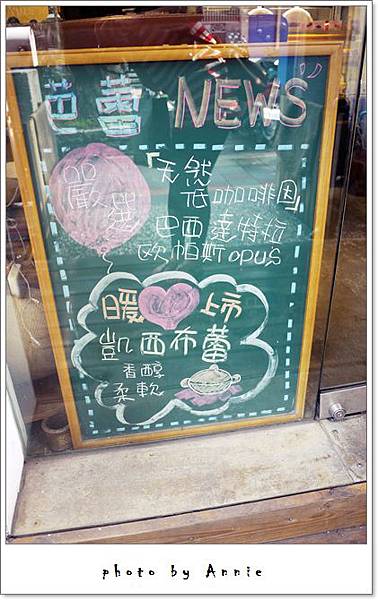 芭蕾 NEWS
嚴選
「天然
低咖啡因」
巴西達特拉
歐帕斯opus
暖 上市
凱西布蕾
香醇
柔軟
photo by Annie